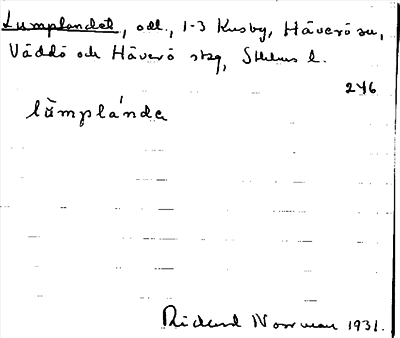 Lumplandet, odl., 1-3 Kusby, Häverö sn,
Väddö och Häverö skg, Sthlms l.
246
lùmplánde
Rickard Norrman 1931.